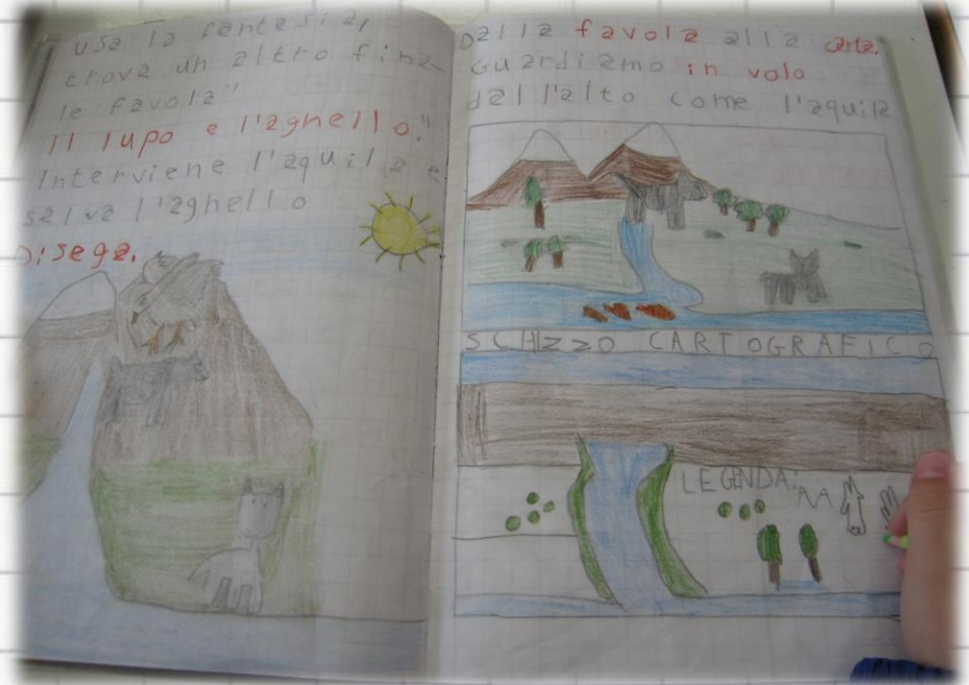 usa la fantasia,
trova un altro fina_
le favola"
Il lupo e l'agnello."
Interviene l'aquila e
salva l'agnello
Disega.
Dalla favola alla carta.
Guardiamo in volo
dall'alto come l'aquila
SCHIZZO CARTOGRAFICO
LEGENDA: